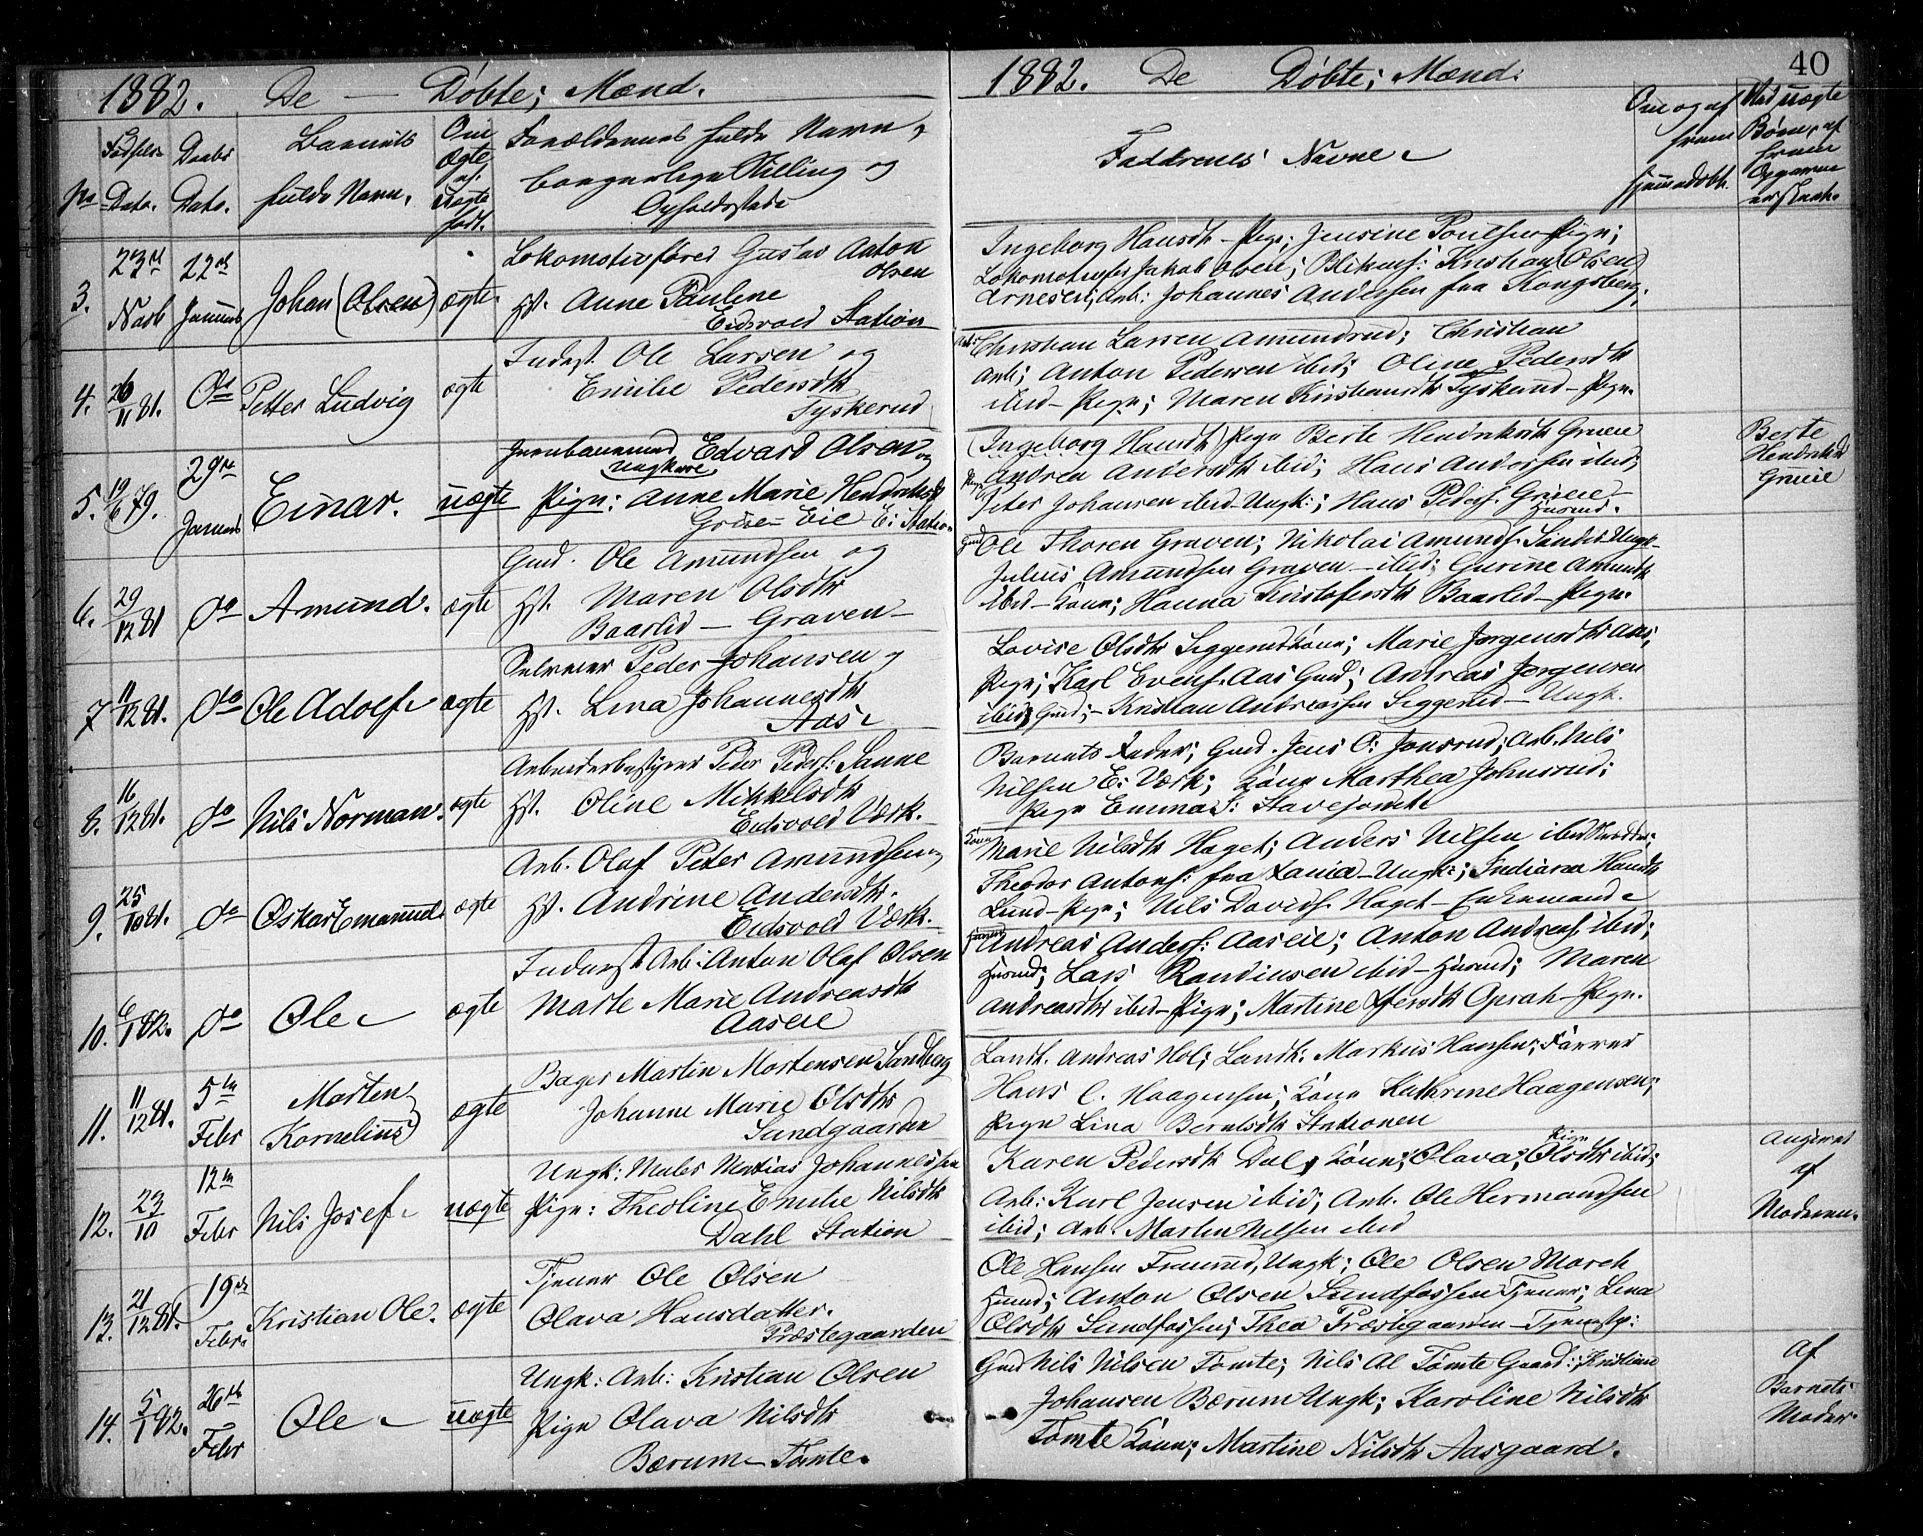 1882. De — Døbte; Mænd.
No
Fødsels Dato.
Daabs Dato.
Barnets fulde Navn.
Om Ægte el. Uægte født.
Forældrenes fulde Navn,
borgerlige Stilling og
Opholdssted
3.
23de Novb
22de Januar
Johan (Olsen)
ægte.
Lokomotivfører Gustav Anton Olsen
Hst. Anne Pauline
Eidsvold Station
4.
26/11 81.
do
Petter Ludvig
ægte
Inderst. Ole Larsen og
Emilie Pedersdtr
Tyskerud
5.
19/6 79.
29de Januar
Einar.
uægte
Jernbanemand Edvard Olsen og
Ungkarl
Pige: Anne Marie Hendriksdtr
Grüe Eie E: Station
6.
29/12 81
do
Amund.
ægte
Gmd. Ole Amundsen og
Hst. Maren Olsdtr
Baarlid — Graven
7
11/12 81.
do
Ole Adolf
ægte
Selveier Peder Johansen og
Hst. Lina Johannesdtr
Aas
8.
16/12 81.
do
Nils Norman.
ægte
Arbeiderbestyrer Peder Peders: Sanne
Hst. Oline Mikkelsdtr
Eidsvold Værk.
9.
25/10 81.
do
Oskar Emanuel
ægte
Arb. Olaf Peter Amundsen og
Hst. Andrine Andersdtr.
Eidsvold Værk.
10.
6/1 82.
do
Ole
ægte
Inderst Arb: Anton Olaf Olsen
Marte Marie Andreasdtr
Aaseie
11.
11/12 81.
5te Febr
Morten
Kornelius
ægte
Bager Martin Mortensen Sandberg
Johanne Marie Olsdtr
Sundgaarden
12.
23/10
12te Febr
Nils Josef
uægte
Ungk: Matias Johannessen
Pige: Theoline Emilie Nilsdtr
Dahl Station
13.
21/12 81.
19de Febr
Kristian Ole.
ægte
Tjener Ole Olsen
Olava Hansdatter.
Præstegaarden
14.
5/1 82.
26de Febr
Ole
uægte
Ungk: Arb: Kristian Olsen
Pige Olava Nilsdtr
Bærum Tømte.
1882. De Døbte; Mænd.
40
Faddrenes Navne
Om og af hvem hjemmedøbt.
Ved uægte Børn, af hvem Opgaven er skeet.
Ingeborg Hansdtr Pige; Jensine Poulsen Pige;
Lokomotivfør Jakob Olsen; Blikensl: Kristian (Olsen)
Arnesen; Arb: Johannes Andersen fra Kongsberg.
Christian Larsen Amundrud; Christian
Arb; Anton Pedersen ibid; Oline Pedersdtr
ibid — Pige; Maren Kristiansdtr Tyskerud — Pige.
(Ingeborg Hansdtr) Pige Berte Hendriksdtr Grüeie
Pige Andrea Andersdtr ibid; Hans Andersen ibid;
Peter Johansen ibid Ungk:; Hans Peders: Grüeie
Husmd.
Berte
Hendriksd
Grüeie
Gmd Ole Thoren Graven; Nikolai Amunds. Sandli Ungk
Julius Amundsen Graven — ibid; Gurine Amundsd
ibid — Kone; Hanna Kristofersdtr Baarlid — Pige.
Lovise Olsdtr Seggerud Kone; Marie Jørgensdtr Aas;
Pige; Karl Evens. Aas Gmd; Andreas Jørgensen
ibid Gmd; — Kristian Andreassen Seggerud — Ungk.
Barnets Fader; Gmd. Jens O: Jonsrud; Arb. Nils
Nilsen E: Værk; Kone Marthea Johnsrud;
Pige Emma S: Stavejordet
Kone Marie Nilsdtr Haget; Anders Nilsen ibid
Theodor Antons: fra Ungk:; Indiana Hansdtr
Lund — Pige; Nils Davids. Haget — Enkemand
Andreas Anders: Aaseie; Anton Andreas. ibid;
Husmd; Lars Randinsen ibid — Husmd; Maren
Andreasdtr ibid — Pige; Martine Opsah — Pige.
Landh. Andreas Hol; Landh: Markus Hansen; Farver
Hans C. Haagensen; Kone Kathrine Haagensen;
Pige Lina Berntsdtr Stationen
Karen Pedersdtr Dal, Kone; Olava Pige Olsdtr ibid;
Arb: Karl Jensen ibid; Arb. Ole Hermandsen
ibid; Arb. Martin Nilsen ibid
Angivet
af
Moderen.
Ole Hansen Ungk; Ole Olsen Moreh
Husmd; Anton Olsen Sundfossen Tjener; Lena
Olsdtr Sundfossen; Thea Præstegaarden — Tjenestp:
Gmd Nils Nilsen Tømte; Nils Al Tømte Gaard:; Kristian
Johansen Bærum Ungk; Karoline Nilsdtr
Tømte Kone; Martine Nilsdtr Aasgaard.
Af
Barnets
Moder.